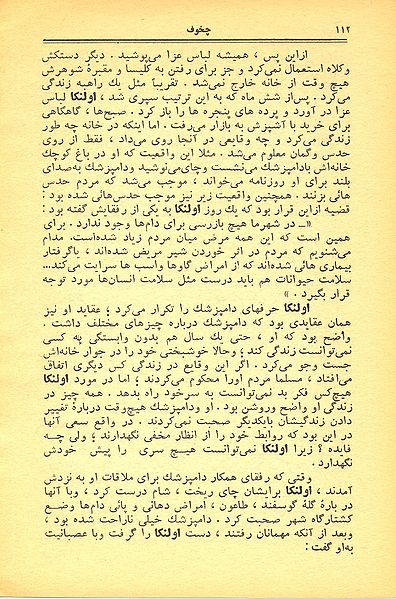 ۱۱۲ چخوف
ازاین پس ، همیشه لباس عزا می‌پوشید . دیگر دستکش
وکلاه استعمال نمی‌کرد و جز برای رفتن به کلیسا و مقبرهٔ شوهرش
هیچ وقت از خانه خارج نمی‌شد . تقریباً مثل یك راهبه زندگی
می‌کرد . پس‌از شش ماه که به این ترتیب سپری شد ، اولنکا لباس
عزا در آورد و پرده های پنجره ها را باز کرد . صبح‌ها ، گاهگاهی
برای خرید با آشپزش به بازار می‌رفت . اما اینکه در خانه چه طور
زندگی می‌کرد و چه وقایعی در آنجا روی می‌داد ، فقط از روی
حدس وگمان معلوم می‌شد . مثلا این واقعیت که او در باغ کوچك
خانه‌اش بادامپزشك می‌نشست وچای‌می‌نوشید ودامپزشك به‌صدای
بلند برای او روزنامه می‌خواند ، موجب می‌شد که مردم حدس
هائی بزنند . همچنین واقعیت زیر نیز موجب حدس‌هائی شده بود :
قضیه ازاین قرار بود که یك روز اولنکا به یکی از رفقایش گفته بود :
«ــ در شهرما هیچ بازرسی برای دام‌ها وجود ندارد . برای
همین است که این همه مرض میان مردم زیاد شده‌است. مدام
می‌شنویم که مردم در اثر خوردن شیر مریض شده‌اند ، یاگرفتار
بیماری هائی شده‌اند که از امراض گاوها واسب ها سرایت می‌کند...
سلامت حیوانات هم باید درست مثل سلامت انسان‌ها مورد توجه
قرار بگیرد . »
اولنکا حرفهای دامپزشك را تکرار می‌کرد ؛ عقاید او نیز
همان عقایدی بود که دامپزشك درباره چیزهای مختلف داشت .
واضح بود که او ، حتی یك سال هم بدون وابستگی به کسی
نمی‌توانست زندگی کند ؛ وحالا خوشبختی خود را در جوار خانه‌اش
جست وجو می‌کرد . اگر این وقایع در زندگی کس دیگری اتفاق
می‌افتاد ، مسلما مردم اورا محکوم می‌کردند ؛ اما در مورد اولنکا
هیچ‌کس فکر بد نمی‌توانست به سرخود راه بدهد . همه چیز در
زندگی او واضح وروشن بود . او ودامپزشك هیچ‌وقت دربارهٔ تغییر
دادن زندگیشان بایکدیگر صحبت نمی‌کردند . در واقع سعی آنها
در این بود که روابط خود را از انظار مخفی نگهدارند ؛ ولی چه
فایده ؟ زیرا اولنکا نمی‌توانست هیچ سری را پیش خودش
نگهدارد .
وقتی که رفقای همکار دامپزشك برای ملاقات او به نزدش
آمدند ، اولنکا برایشان چای ریخت ، شام درست کرد ، وبا آنها
در بارهٔ گلهٔ گوسفند ، طاعون ، امراض دهانی و پائی دام‌ها وضع
کشتارگاه شهر صحبت کرد . دامپزشك خیلی ناراحت شده بود ،
وبعد از آنکه مهمانان رفتند ، دست اولنکا را گرفت وبا عصبانیت
به‌او گفت :